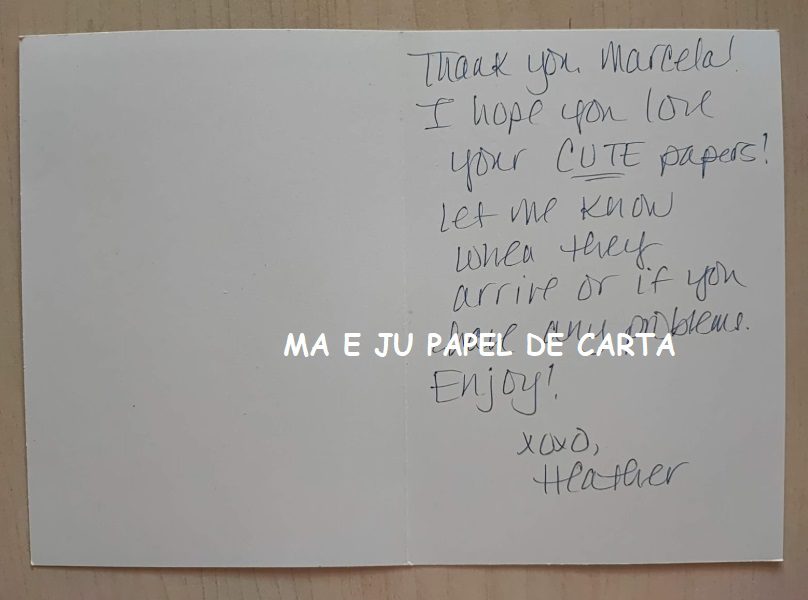 Thank you Marcela!
I hope you love
your CUTE papers!
Let me know
when they
arrive or if you
have any problems.
MA E JU PAPEL DE CARTA
Enjoy!
xoxo,
Heather